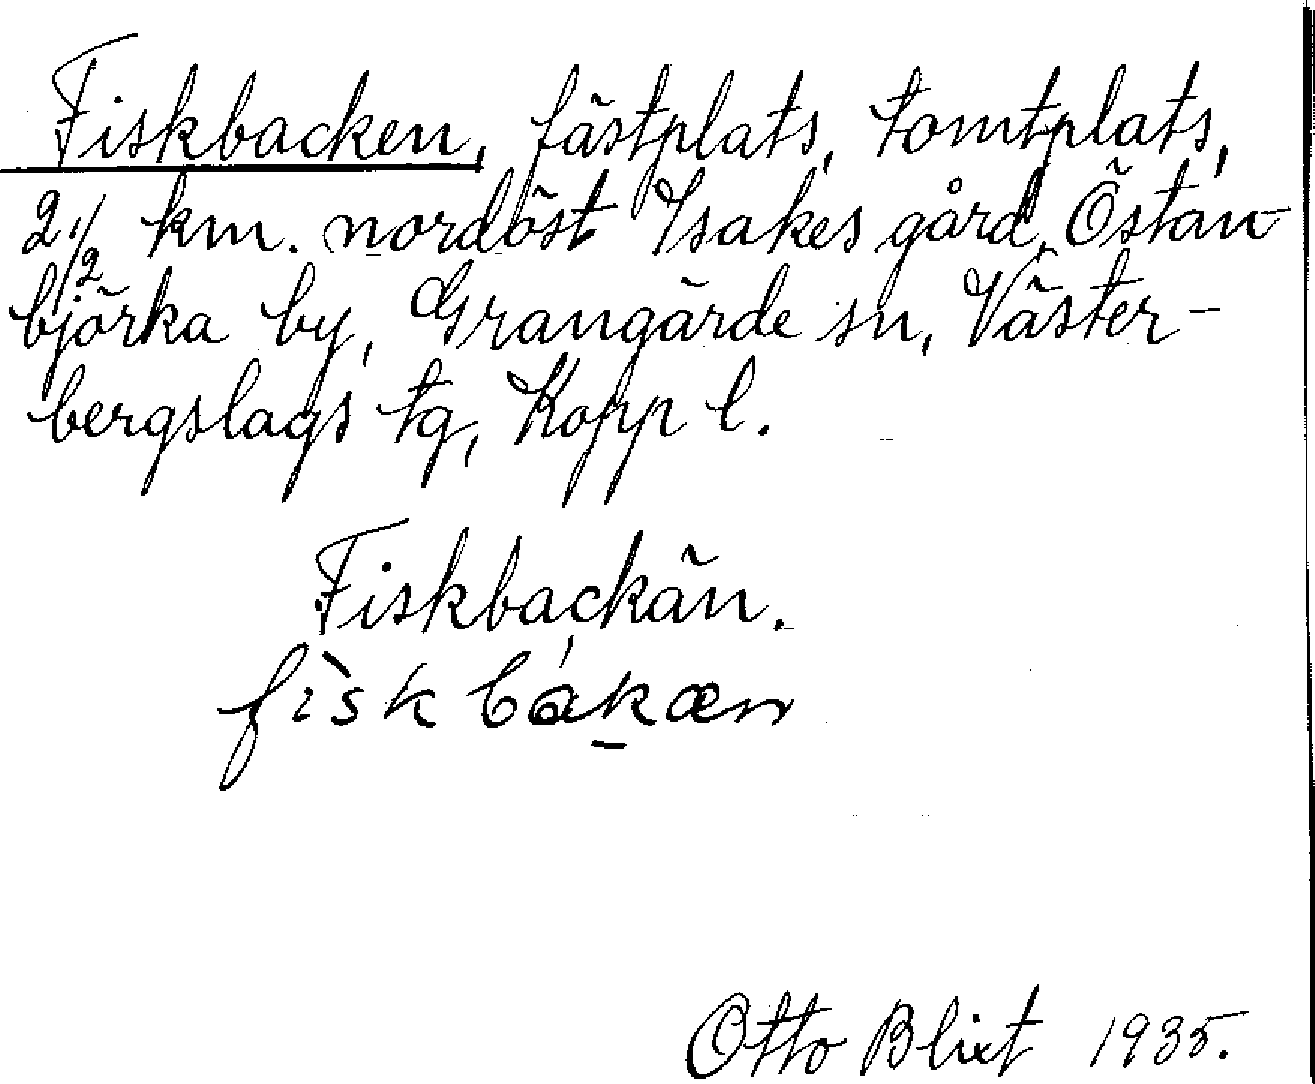 Fiskbacken, fästplats, tomtplats,
2 1/2 km. nordöst Isakes gård, Östan
björka by, Grangärde sn, Väster-
bergslags tg, Kopp l.
Fiskbackän.
fìskbákæn
Otto Blixt 1935.